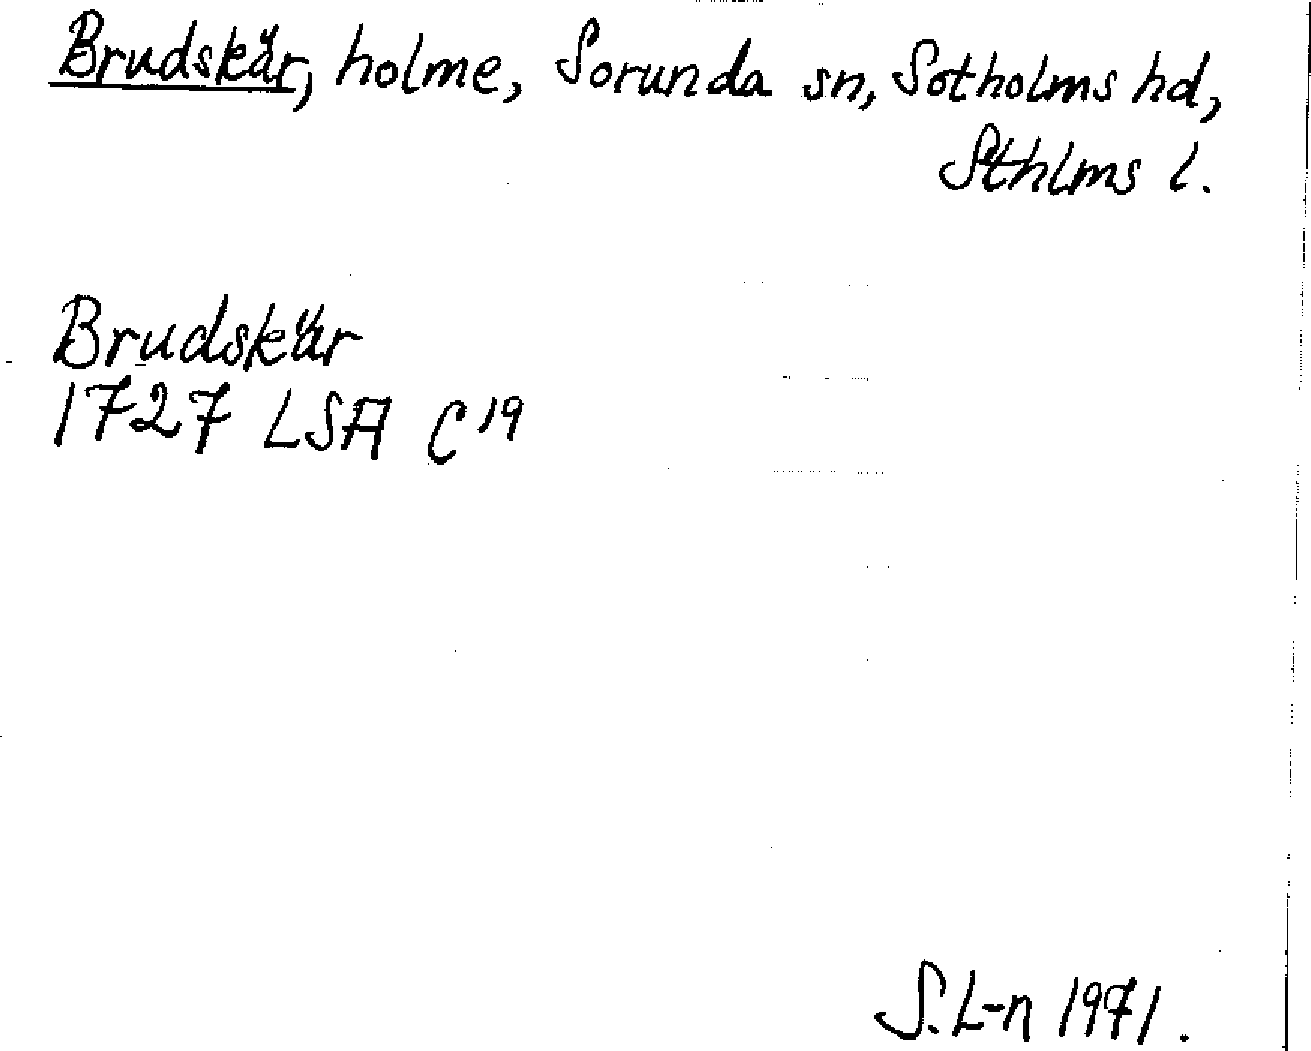 Brudskär, holme, Sorunda sn, Sotholms hd,
Sthlms l.
Brudskär
1727 LSA C19
S.L-n 1971.